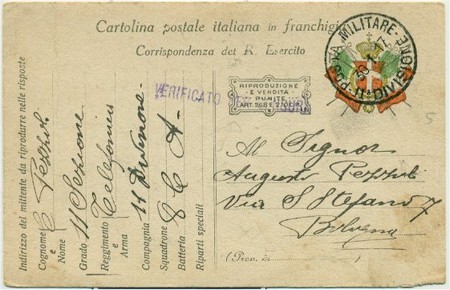 Cartolina postale italiana in franchigia
Corrispondenza del R. Esercito
POSTA MILITARE
DIVISIONE
VERIFICATO
RIPRODUZIONE
E VENDITA
PUNITE
ART.
Indirizzo del mittente da riprodurre nelle risposte
Cognome e Nome
Grado 11 Sezione
Reggimento e Arma Telefonisti
Compagnia 11 Divisione
Squadrone
Batteria
Riparti speciali
Al Signor
Augusto
Via S Stefano 7
Bologna
(Prov. di